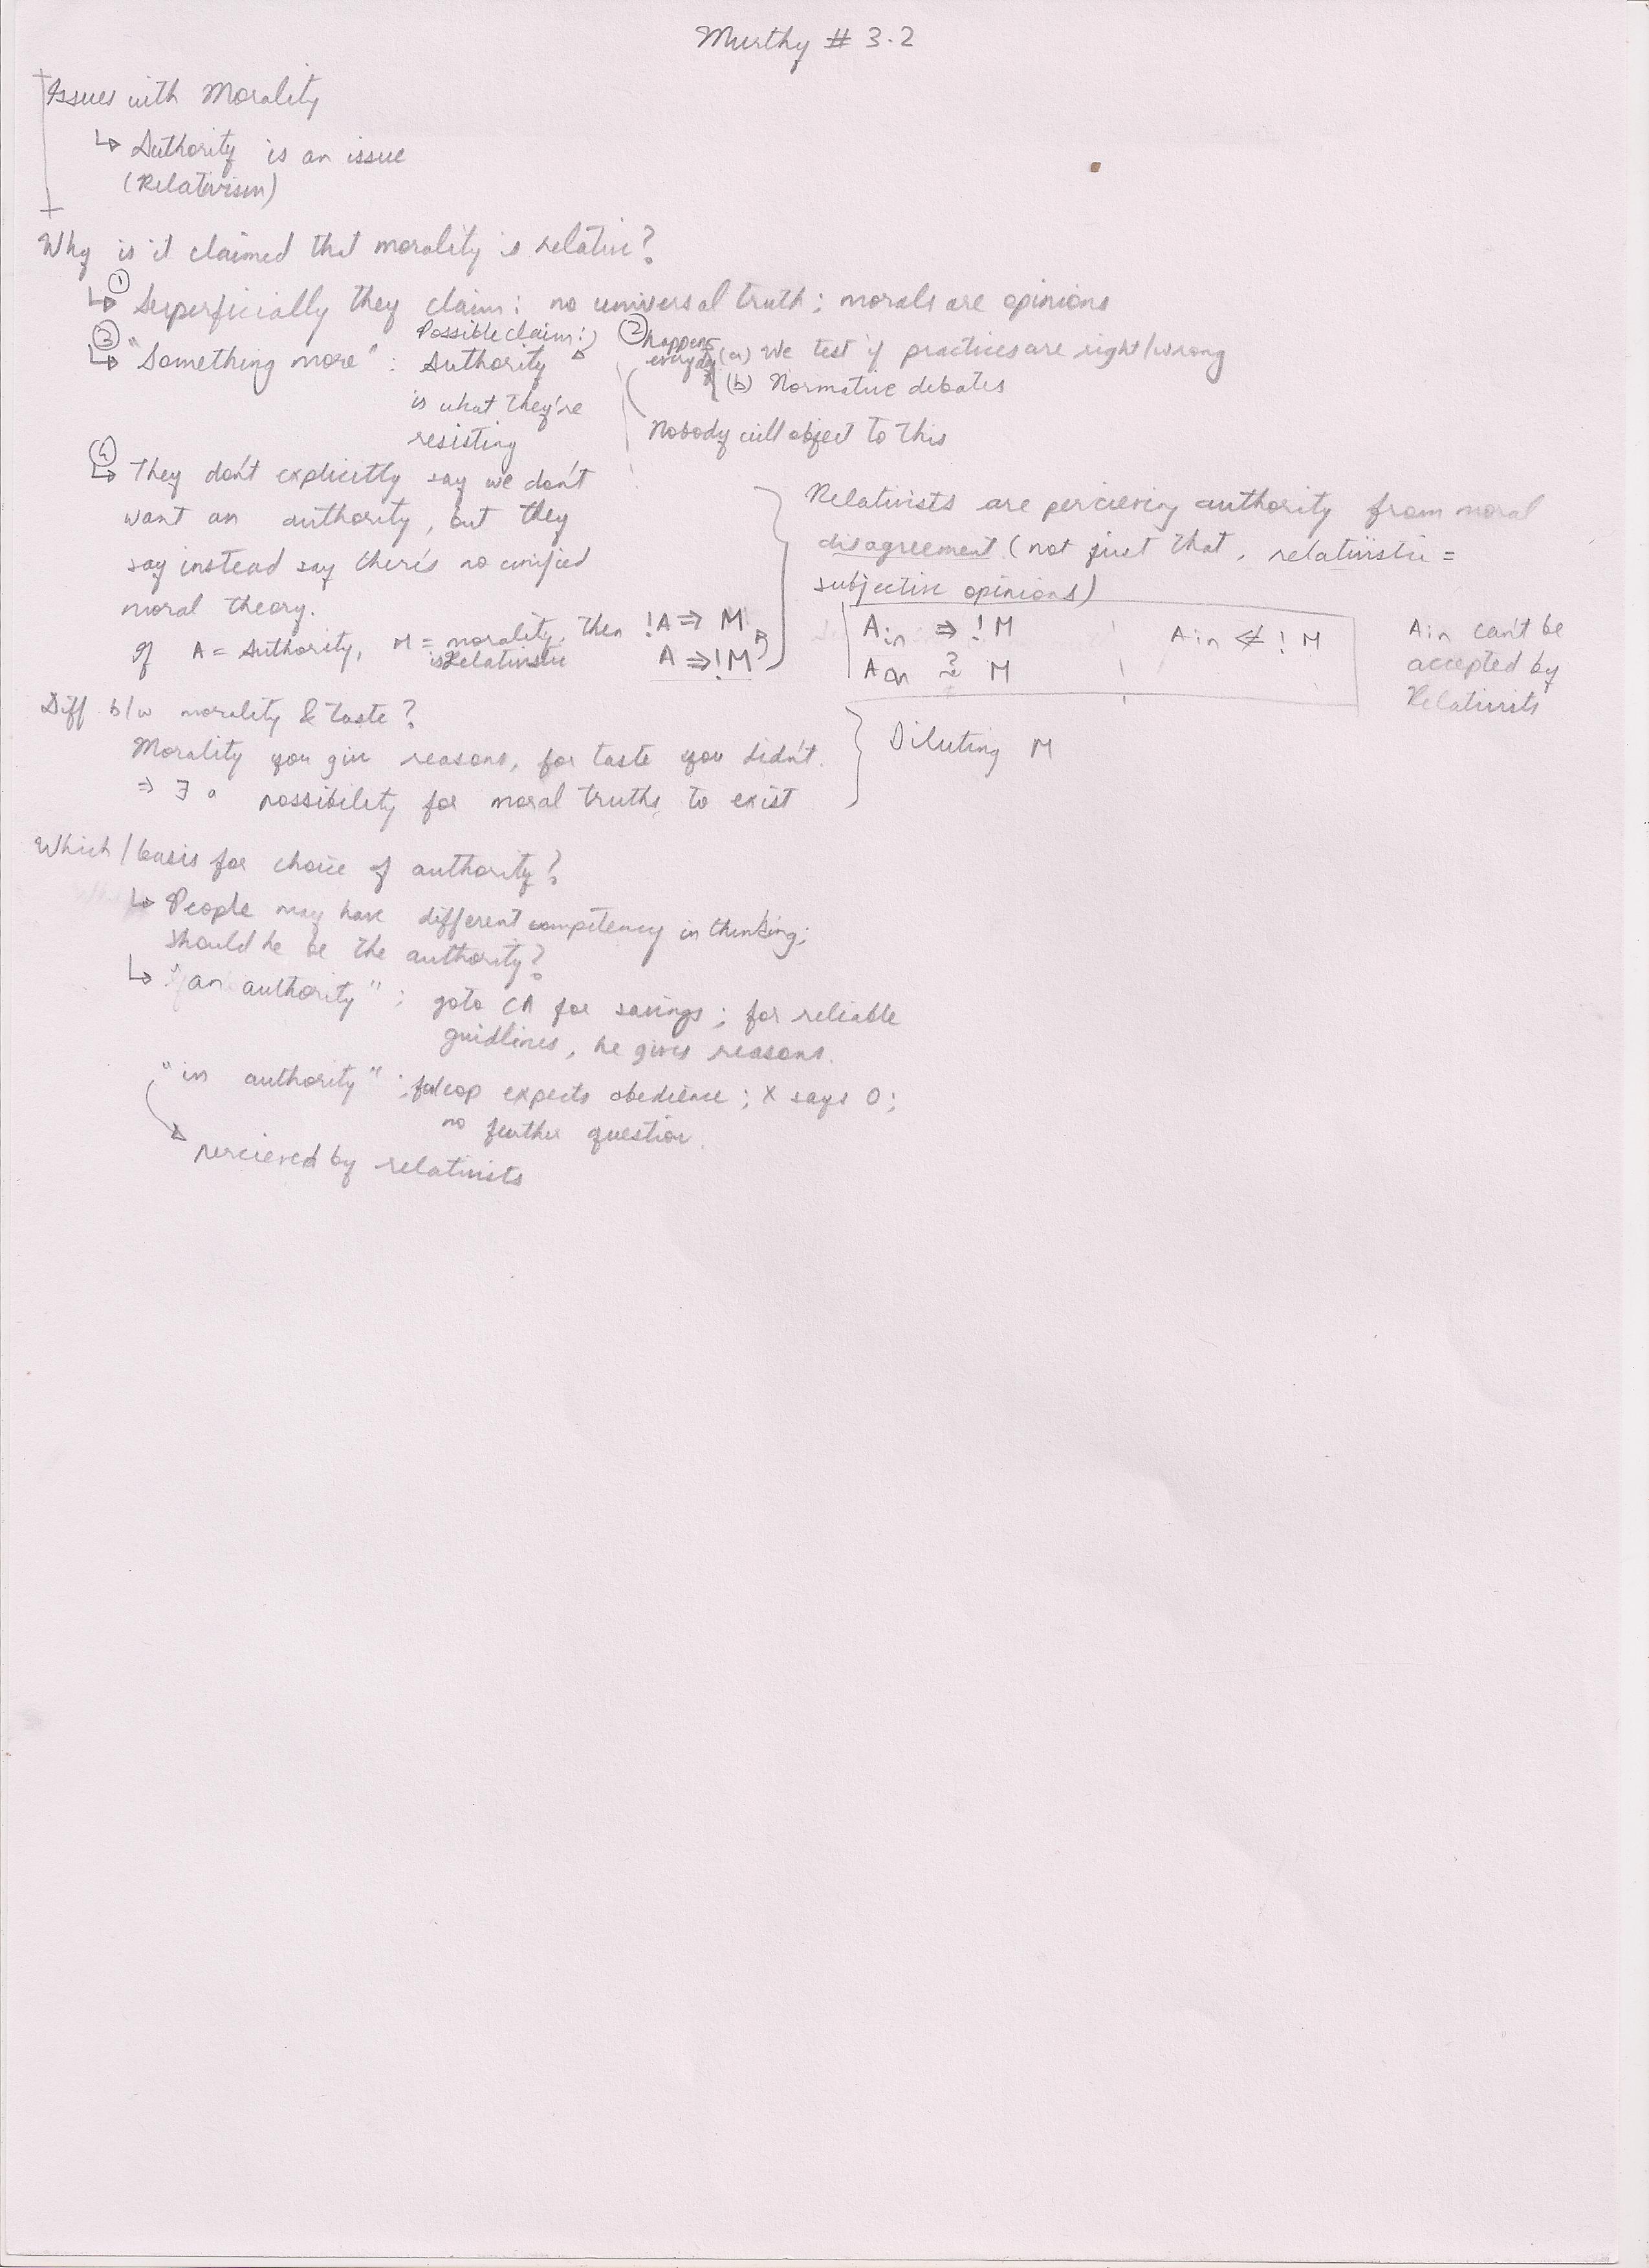 Murthy # 3.2
Issues with Morality
↳ Authority is an issue
(Relativism)
Why is it claimed that morality is relative?
① ↳ Superficially they claim: no universal truth; morals are opinions
③ ↳ "Something more" : Possible claim: Authority
is what they're
resisting
② happens everyday (a) We test if practices are right/wrong
(b) Normative debates
Nobody will object to this
④ ↳ They don't explicitly say we don't
want an authority, but they
say instead say there's no unified
moral theory.
If A = Authority, M = morality is Relativistic, then !A ⇒ M
A ⇒ !M
Relativists are percieving authority from moral
disagreement (not just that, relativistic =
subjective opinions)
A in ⇒ !M
A an M
A in !M
A in can't be
accepted by
Relativists
Diff b/w morality & taste?
Morality you give reasons, for taste you didn't.
⇒ ∃ a possibility for moral truths to exist
Diluting M
Which/basis for choice of authority?
↳ People may have different competency in thinking;
should he be the authority?
↳ "an authority" : goto CA for savings; for reliable
guidlines, he gives reasons.
"in authority" : cop expects obedience; X says O;
no further question.
percieved by relativists